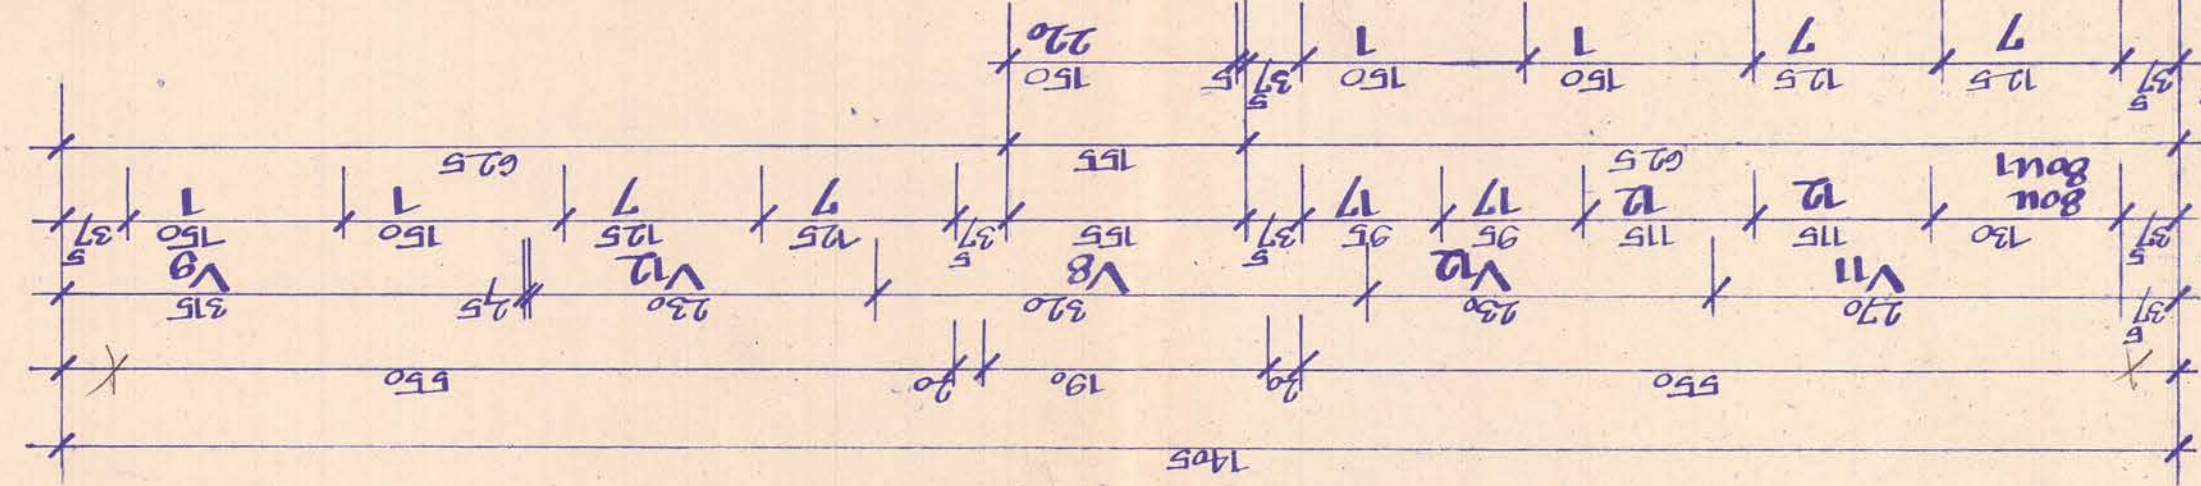 1405
550 20 190 20 550
37⁵ 270 230 320 230 2,5 315
V11 V12 V8 V12 V9
37⁵ 130 115 115 95 95 37⁵ 155 37⁵ 125 125 150 150 37⁵
80u 12 12 17 17 7 7 1 1
80u1
625 155 625
37⁵ 125 125 150 150 37⁵ 5 150
7 7 1 1 220